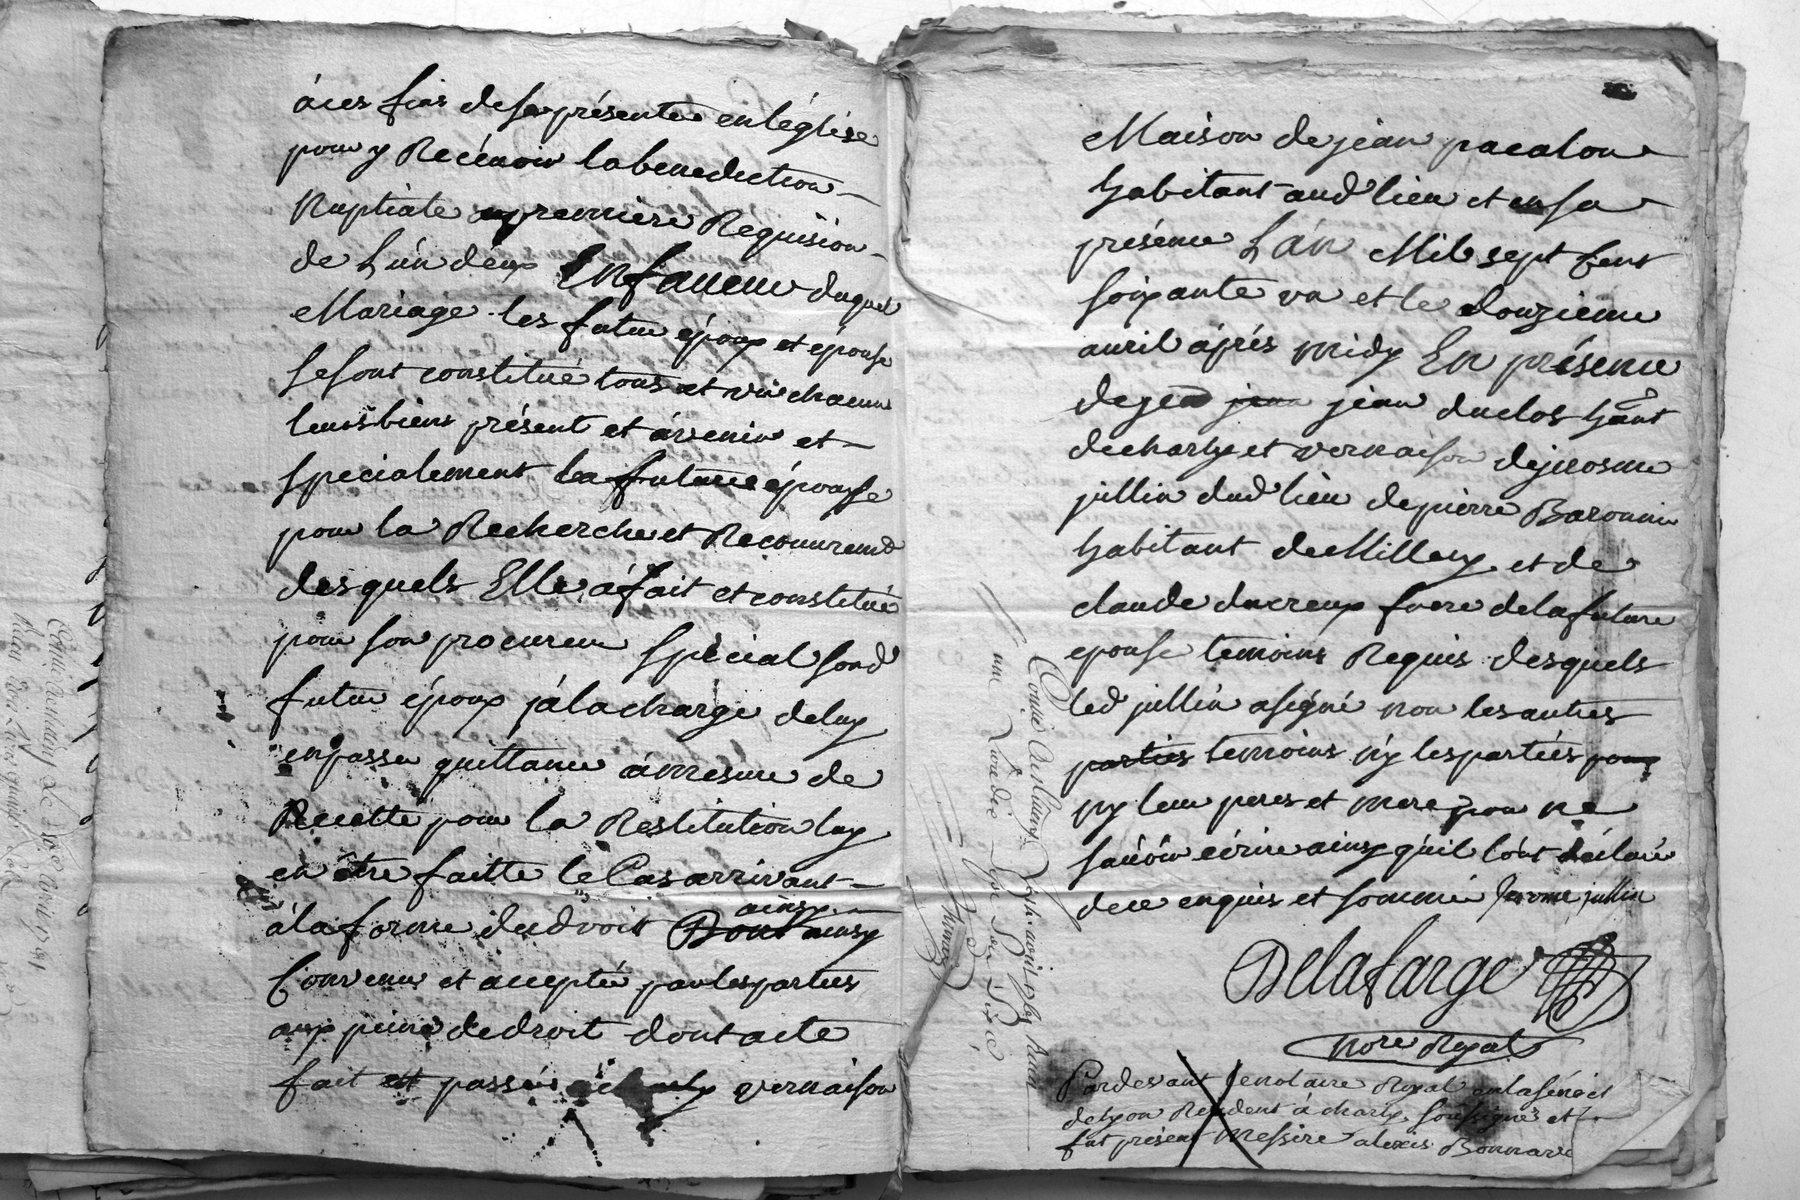 à ces fins de se présenter en léglise
pour y Recevoir la benediction
Nuptiale a premiere Requision
de L'ún deux En faveur duquel
Mariage les futur époux et épouse
se sont constitué tous et vn chacun
leurs biens présent et àvenir et
specialement la future épouse
pour la Recherche et Recouvremt
des quels Elle á fait et constitué
pour son procureur spécial sond
futur époux à la charge de luy
en passer quittance á mesure de
Recette pour la Restitution luy
en être faitte le Cas arrivant
á la forme du droit ainsy
Convenu et accepté par les parties
aux peine de droit dont acte
fait et passé vernaison
Maison de jean pacalon
habitant aud lieu et en sa
présence L'án Mil sept Cent
soixante vn et le douzieme
avril áprés midy En présence
de jean duclos hant
de charly et vernaison de jerosme
jullin dud lieu de pierre Baronnier
habitant de Millery et de
claude ducreux frere de la future
epouse temoins Requis desquels
led jullin a signé non les autres
parties temoins ny les parties
ny leur peres et mere pour ne
sáuoir écrire ainsy qu'il l'ont déclaré
de ce enquis et sommé Jerome jullin
Delafarge
nore Royal
Pardevant le notaire Royal en la séné et
de Lyon Resident à charly soussigné et
fut présent Messire alexis Bonnave